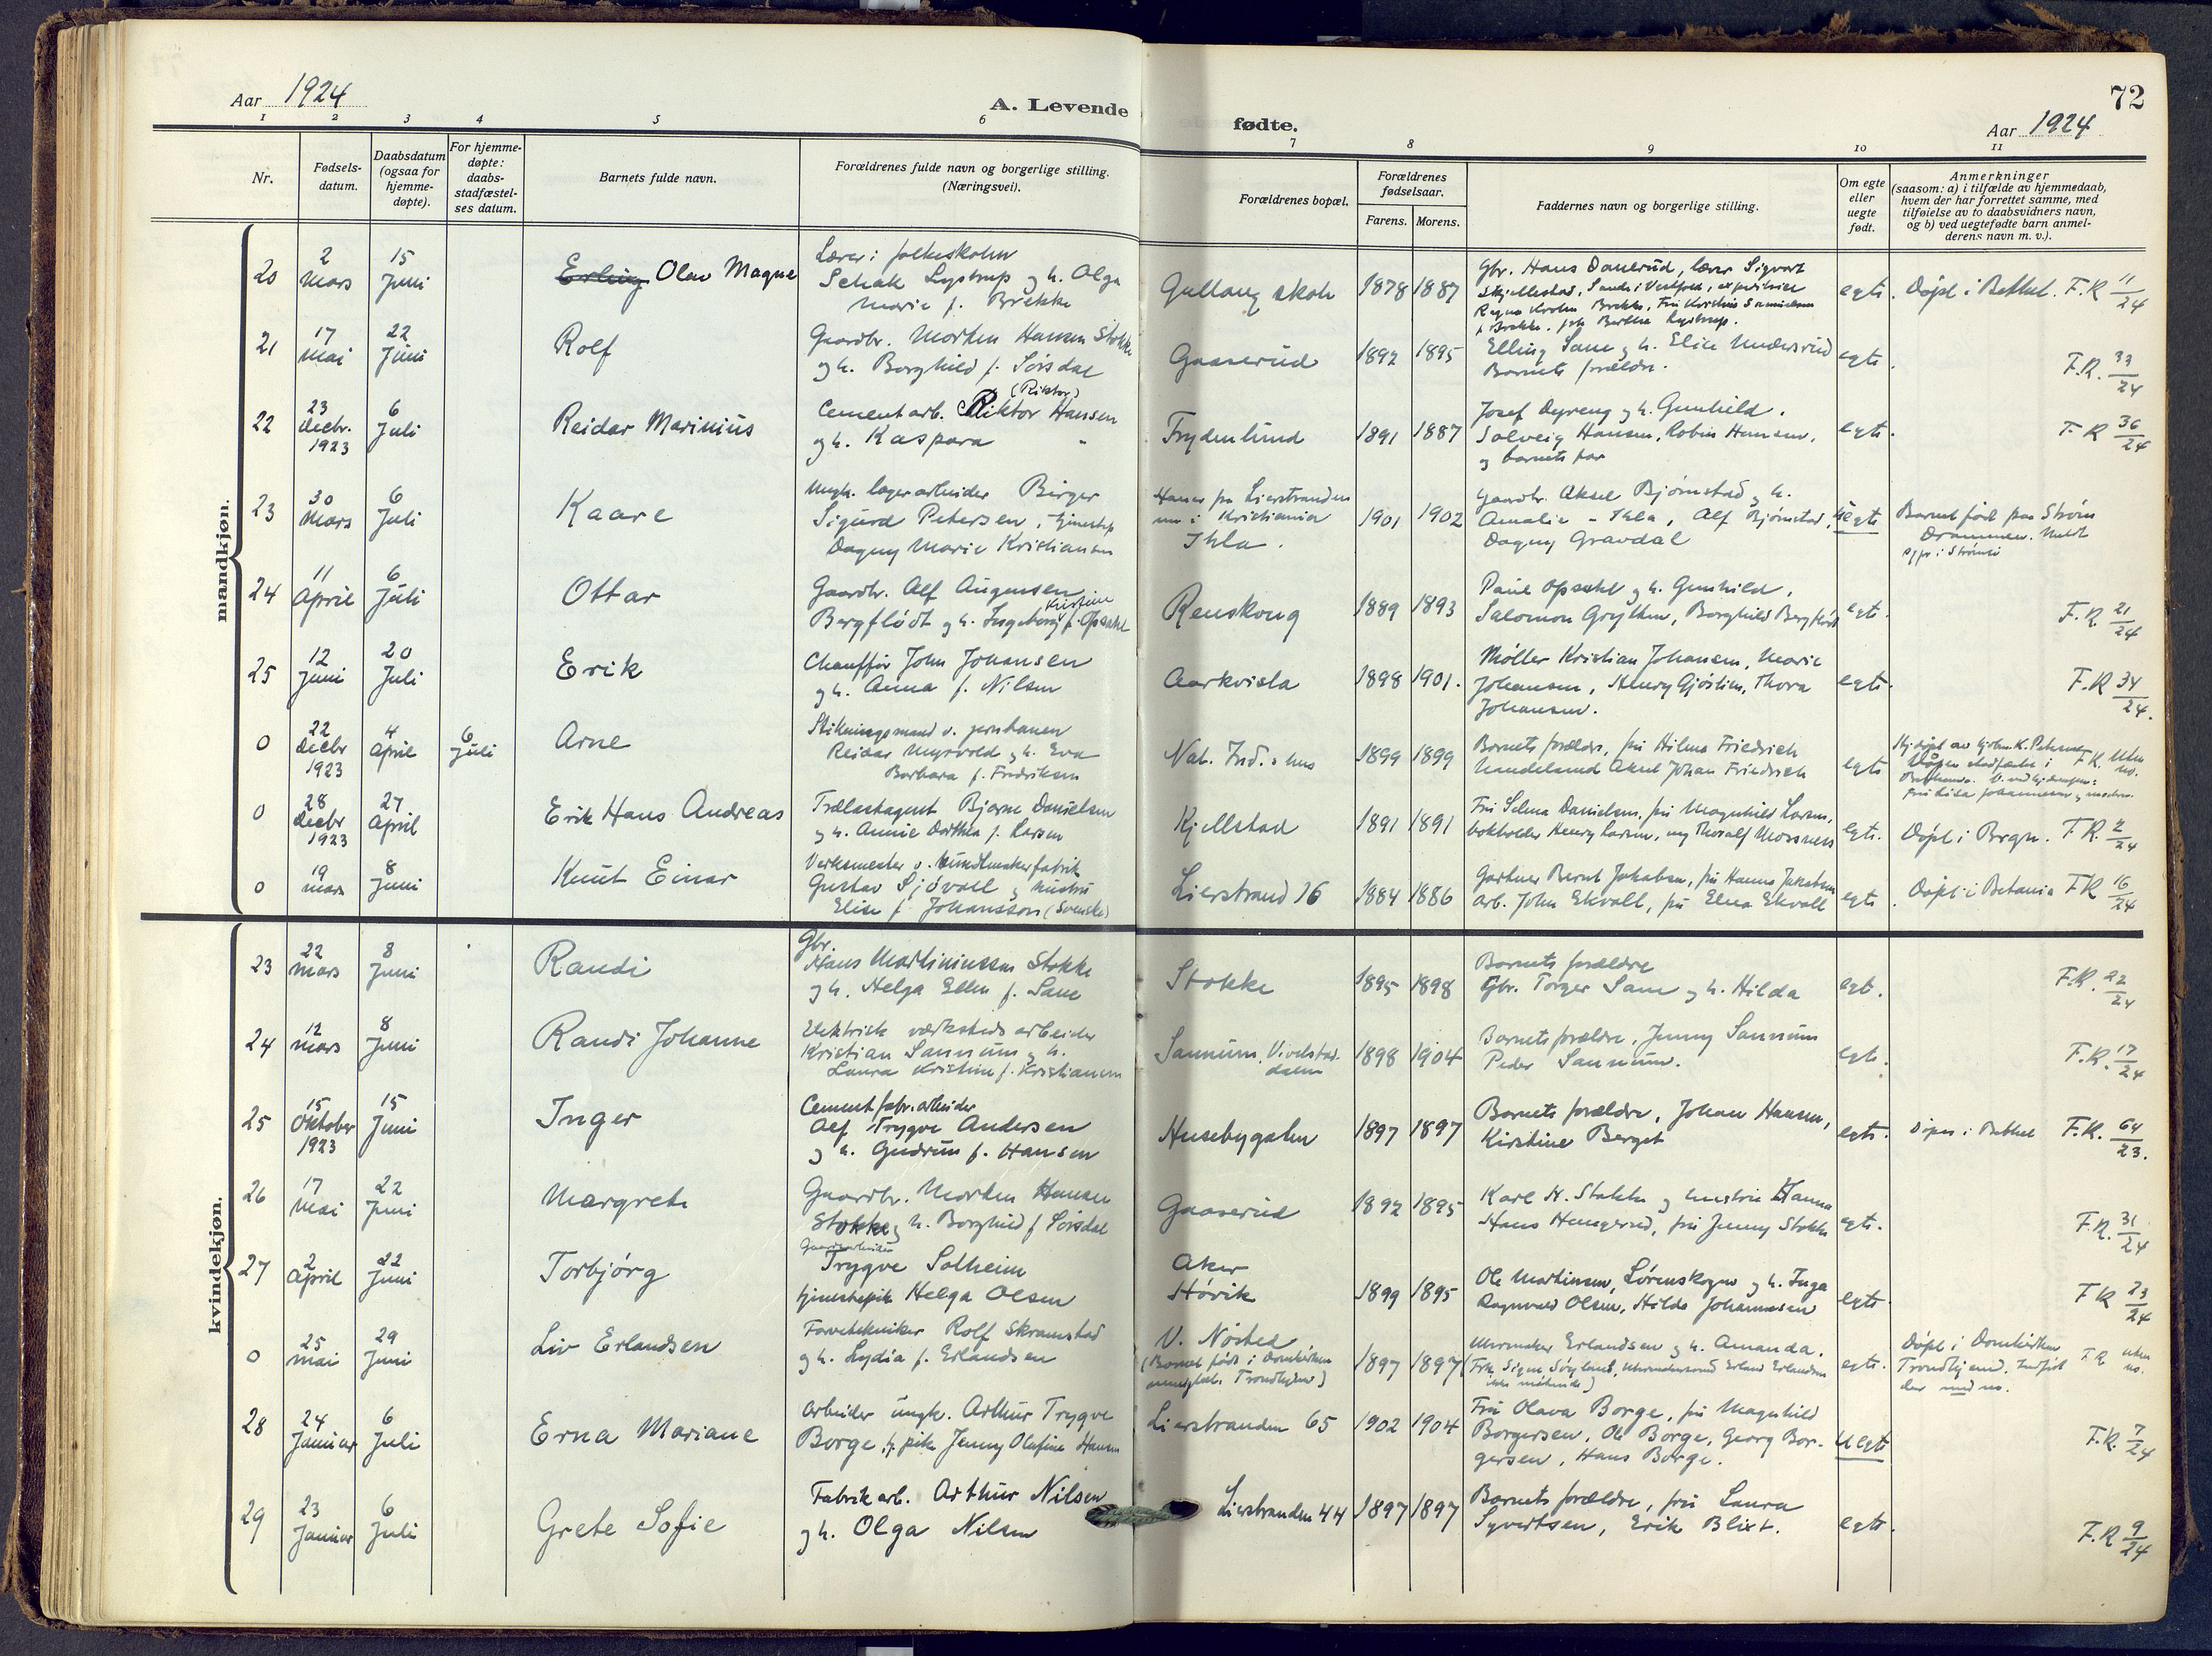 Aar 1924
A. Levende fødte.
Aar 1924
72
1 2 3 4 5 6 7 8 9 10 11
Nr.
Fødsels-
datum.
Daabsdatum
(ogsaa for
hjemme-
døpte).
For hjemme-
døpte:
daabs-
stadfæstel-
ses datum.
Barnets fulde navn.
Forældrenes fulde navn og borgerlige stilling.
(Næringsvei).
Forældrenes bopæl.
Forældrenes
fødselsaar.
Farens. Morens.
Faddernes navn og borgerlige stilling.
Om egte
eller
uegte
født.
Anmerkninger
(saasom: a) i tilfælde av hjemmedaab,
hvem der har forrettet samme, med
tilføielse av to daabsvidners navn,
og b) ved uegtefødte barn anmel-
derens navn m. v.).
mandkjøn.
20
2
Mars
15
Juni
Erling Olav Magne
Lærer i folkeskolen
Schak Lystrup og h. Olga
Marie f. Brekke
Gullaug skole
1878 1887
Gbr. Hans Danerud, lærer Sigvart
egte. Døpt i Bethel. F.R 11/24
21
17
Mai
22
Juni
Rolf
Gaardbr. Morten Hansen Stokke
og h. Borghild f. Sørsdal
Gaaserud
1892 1895
Elling Lane og h. Elise Undersrud
Barnets forældre.
egte.
F.R. 33/24
22
23
Decbr.
1923
6
Juli
Reidar Marinius
(Riktor)
Cementarb. Riktor Hansen
og h. Kaspara "
Frydenlund
1891 1887
Josef Dyreng og h. Gunhild.
Solveig Hansen, Robin Hansen,
og barnets far
egte.
F.R 36/24
23
30
Mars
6
Juli
Kaare
Ungk. lagerarbeider Birger
Sigurd Petersen, tjenestep
Dagny Marie Kristiansen
Hans fra Lierstranden
nu i Kristiania
1901 1902
Gaardbr. Aksel Bjørnstad og h.
Amalie - Ihla, Alf Bjørnstad,
Dagny Gravdal
Uegte
Barnet født paa Strøm
Drammen. Meldt
24
11
April
6
Juli
Ottar
Gaardbr. Alf Augensen
Kristine
Bergflødt og h. Ingeborg f. Opsahl
Renskoug
1889 1893
Paul Opsahl og h. Gunhild,
Salomon Gryttem, Borghild Bergflødt
egte.
F.R. 21/24
25
12
Juni
20
Juli
Erik
Chauffør John Johansen
og h. Anna f. Nilsen
Aarkvisla
1898 1901.
Møller Kristian Johansen, Marie
Johansen, Henry Gjøstim, Thora
Johansen.
egte.
F.R 34/24.
0
22
Decbr
1923
4
April
6
Juli
Arne
Stikningsmand v. jernbanen
Reidar Myrvold og h. Eva
Barbara f. Fredriksen
Nat. Ind.s hus
1899 1899
Barnets forældre, fru Hilma Friedrich
Handelsmd Aksel Johan Friedrich
egte
0
28
Decbr
1923
27
April
Erik Hans Andreas
Trælastagent Bjarne Danielsen
og h. Annie Dorthea f. Larsen
Kjellstad
1891 1891
Fru Selma Danielsen, fru Magnhild Larsen,
bokholder Henry Larsen, ung Thoralf Mossness
egte. Døpt i Brgn. F.R. 2/24
0
19
Mars
8
Juni
Knut Einar
Verksmester v. bundtmakerfabrik
Gustav Sjövall og hustru
Elise f. Johansson (Svenske)
Lierstrand 16
1884 1886
Gartner Bernt Jakobsen, fru Hanna Jakobsen
arb. John Ekvall, fru Elna Ekvall
egte. Døpt i Betania F.R 16/24
kvindekjøn.
23
22
Mars
8
Juni
Randi
Gbr.
Hans Martiniussen Stokke
og h. Helga Ellen f. Lane
Stokke
1895 1898
Barnets forældre
Gbr. Torger Lane og h. Hilda
egt.
F.R. 22/24
24
12
Mars
8
Juni
Randi Johanne
Elektrisk verksteds arbeider
Kristian Sannum og h.
Laura Kristine f. Kristiansen
Sannum, Vivelstad-
dalen
1898 1904
Barnets forældre, Jenny Sannum
Peder Sannum.
egte.
F.R. 17/24
25
15
Oktober
1923
15
Juni
Inger
Cement fabr. arbeider
Alf Trygve Andersen
og h. Gudrun f. Hansen
Husebygaten
1897 1897
Barnets forældre, Johan Hansen,
Kirstine Berget
egte. Døpt i Bethel F.R. 64/23.
26
17
Mai
22
Juni
Margrete
Gaardbr. Morten Hansen
Stokke og h. Borghild f Sørsdal
Gaaserud
1892 1895
Karl H. Stokke og hustru Hanna
Hans Hengsrud, fru Jenny Stokke
egte.
F.R. 31/24
27
2
April
22
Juni
Torbjørg
Gaardsarbeider
Trygve Solheim
tjenestepik Helga Olsen
Aker
Høvik
1899 1895
Ole Martinsen, Lørenskogen og h. Inga
Ragnvald Olsen, Hilda Johannesen
egte.
F.R 23/24
0
25
Mai
29
Juni
Liv Erlandsen
Farvetekniker Rolf Skramstad
og h. Lydia f. Erlandsen
V. Nøsted
(Barnet født i Domkirken
menighet. Trondhjem)
1897 1897
Urmaker Erlandsen og h. Amanda.
egte.
Døpt i Domkirken
Trondhjem. Indført
der med no.
28
24
Januar
6
Juli
Erna Mariane
Arbeider ungk. Arthur Trygve
Borge og pike Jenny Olufine Hansen
Lierstranden 65
1902 1904
Fru Olava Borge, fru Magnhild
Borgersen, Ole Borge, Georg Bor-
gersen, Hans Borge.
Uegte
F.R. 7/24
29
23
Januar
6
Juli
Grete Sofie
Fabrikarb. Arthur Nilsen
og h. Olga Nilsen
Lierstranden 44
1897 1897
Barnets forældre, fru Laura
Syvertsen, Erik Blixt.
egte.
F.R 9/24